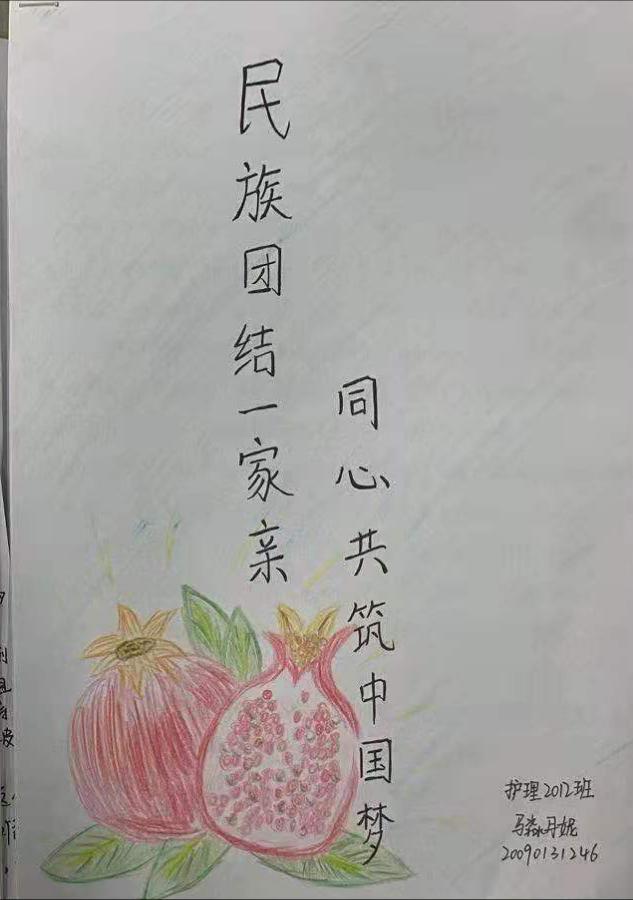 民族团结一家亲
同心共筑中国梦
护理2012班
马淼丹妮
20090131246